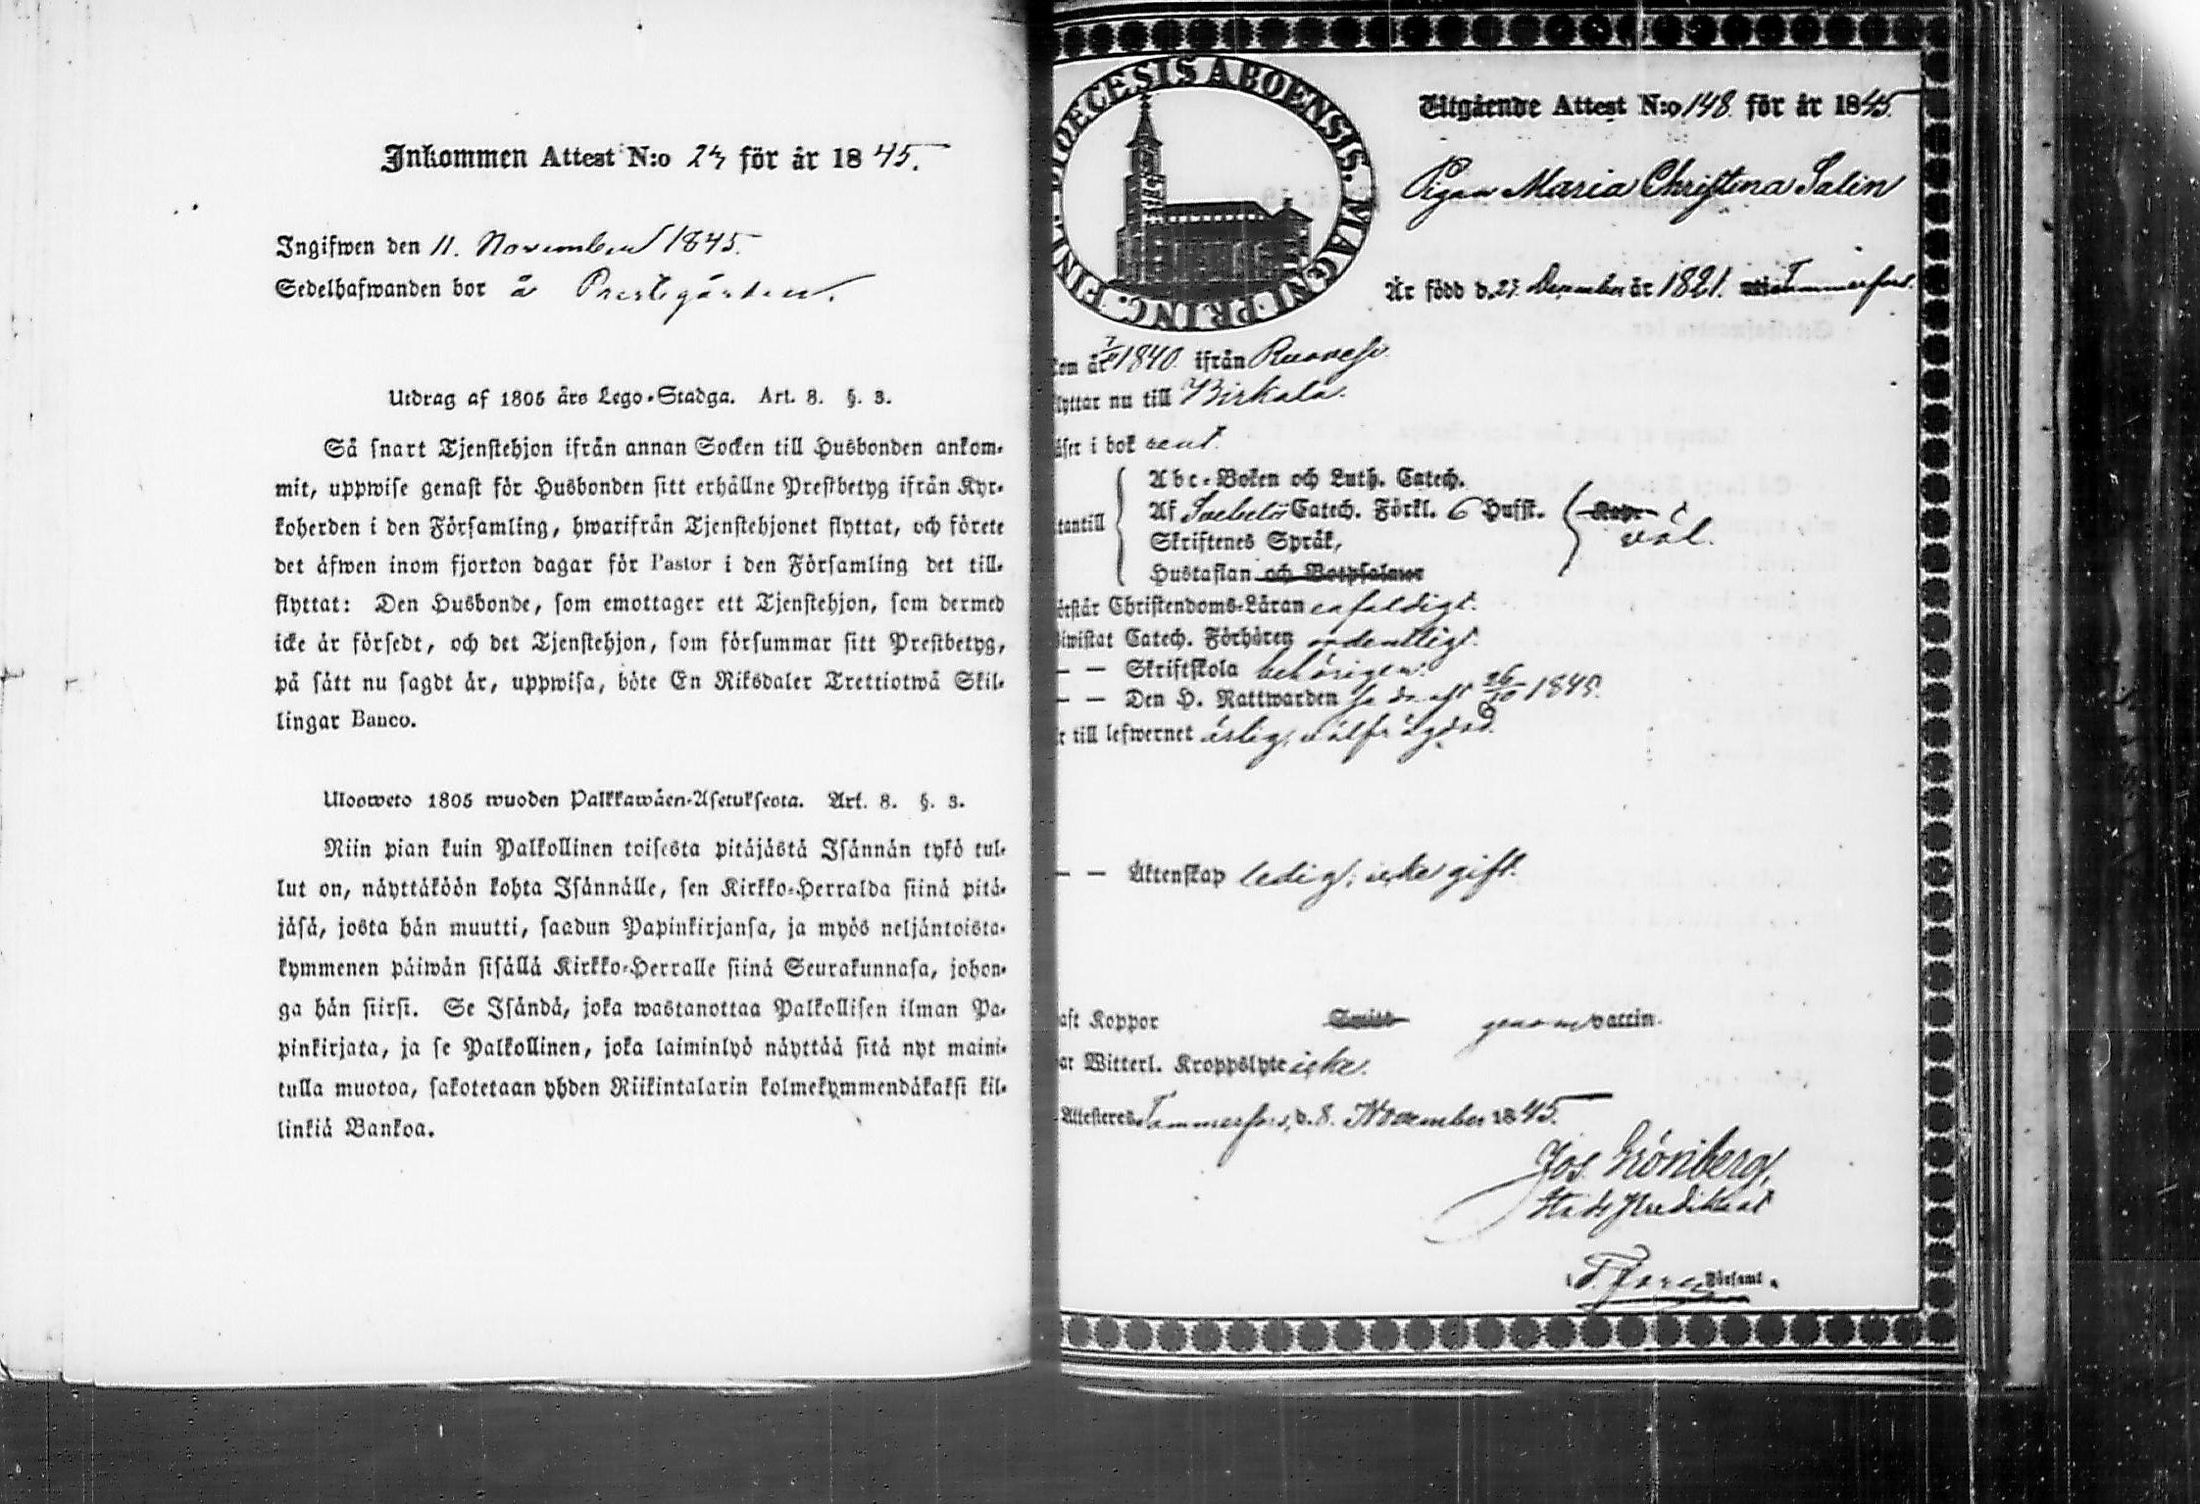 Inkommen Attest N:o 24 för år 1845.
Ingifwen den 11. November 1845.
Sedelhafwanden bor å Prestegården.
Utdrag af 1805 års Lego-Stadga. Art. 8. §. 3.
Så snart Tjenstehjon ifrån annan Socken till Husbonden ankom-
mit, uppwise genast för Husbonden sitt erhållne Prestbetyg ifrån Kyr-
koherden i den Församling, hwarifrån Tjenstehjonet flyttat, och förete
det äfwen inom fjorton dagar för Pastor i den Församling det till-
flyttat: Den Husbonde, som emottager ett Tjenstehjon, som dermed
icke är försedt, och det Tjenstehjon, som försummar sitt Prestbetyg,
på sätt nu sagdt är, uppwisa, böte En Riksdaler Trettiotwå Skil-
lingar Banco.
Uloosweto 1805 wuoden Palkkawäen-Asetuksesta. Art. 8. §. 3.
Niin pian kuin Palkollinen toisesta pitäjästä Isännän tykö tul-
lut on, näyttäköön kohta Isännälle, sen Kirkko-Herralda siinä pitä-
jäsä, josta hän muutti, saadun Papinkirjansa, ja myös neljäntoista-
kymmenen päiwän sisällä Kirkko-Herralle siinä Seurakunnasa, johon-
ga hän siirsi. Se Isändä, joka wastanottaa Palkollisen ilman Pa-
pinkirjata, ja se Palkollinen, joka laiminlyö näyttää sitä nyt maini-
tulla muotoa, sakotetaan yhden Riikintalarin kolmekymmendäkaksi kil-
linkiä Bankoa.
DIOECESIS ABOENSIS. MAGNI PRINC. FINL.
Utgående Attest N:o 148 för år 1845
Pigan Maria Christina Salin
Är född d. 27 December år 1821. Tammerfors.
kom år 1840. ifrån Ruovesi
lyttar nu till Birkala.
äser i bok rent.
Abc-Boken och Luth. Catech.
tantill Af Svebelii Catech. Förkl. 6 Hufst. väl.
Skriftenes Språk,
Hustaflan och Botpsalmer
örstår Christendoms-Läran enfaldigt.
iwistat Catech. Förhören ordentligt.
— — Skriftskola behörigen.
— — Den H. Nattwarden 26/10 1845.
r till lefwernet ärlig, välfrägdad
— — Äktenskap ledig; icke gift.
aft Koppor Smitt genom vaccin.
ar Witterl. Kroppslyte icke.
Attesteres Tammerfors, d. 8. November 1845.
Jos. Grönberg,
Stads Predikant
i T.fors Församl.